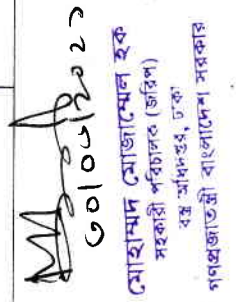 মোহাম্মদ মোজাম্মেল হক
সহকারী পরিচালক (জরিপ)
বস্ত্র অধিদপ্তর, ঢাকা
গণপ্রজাতন্ত্রী বাংলাদেশ সরকার